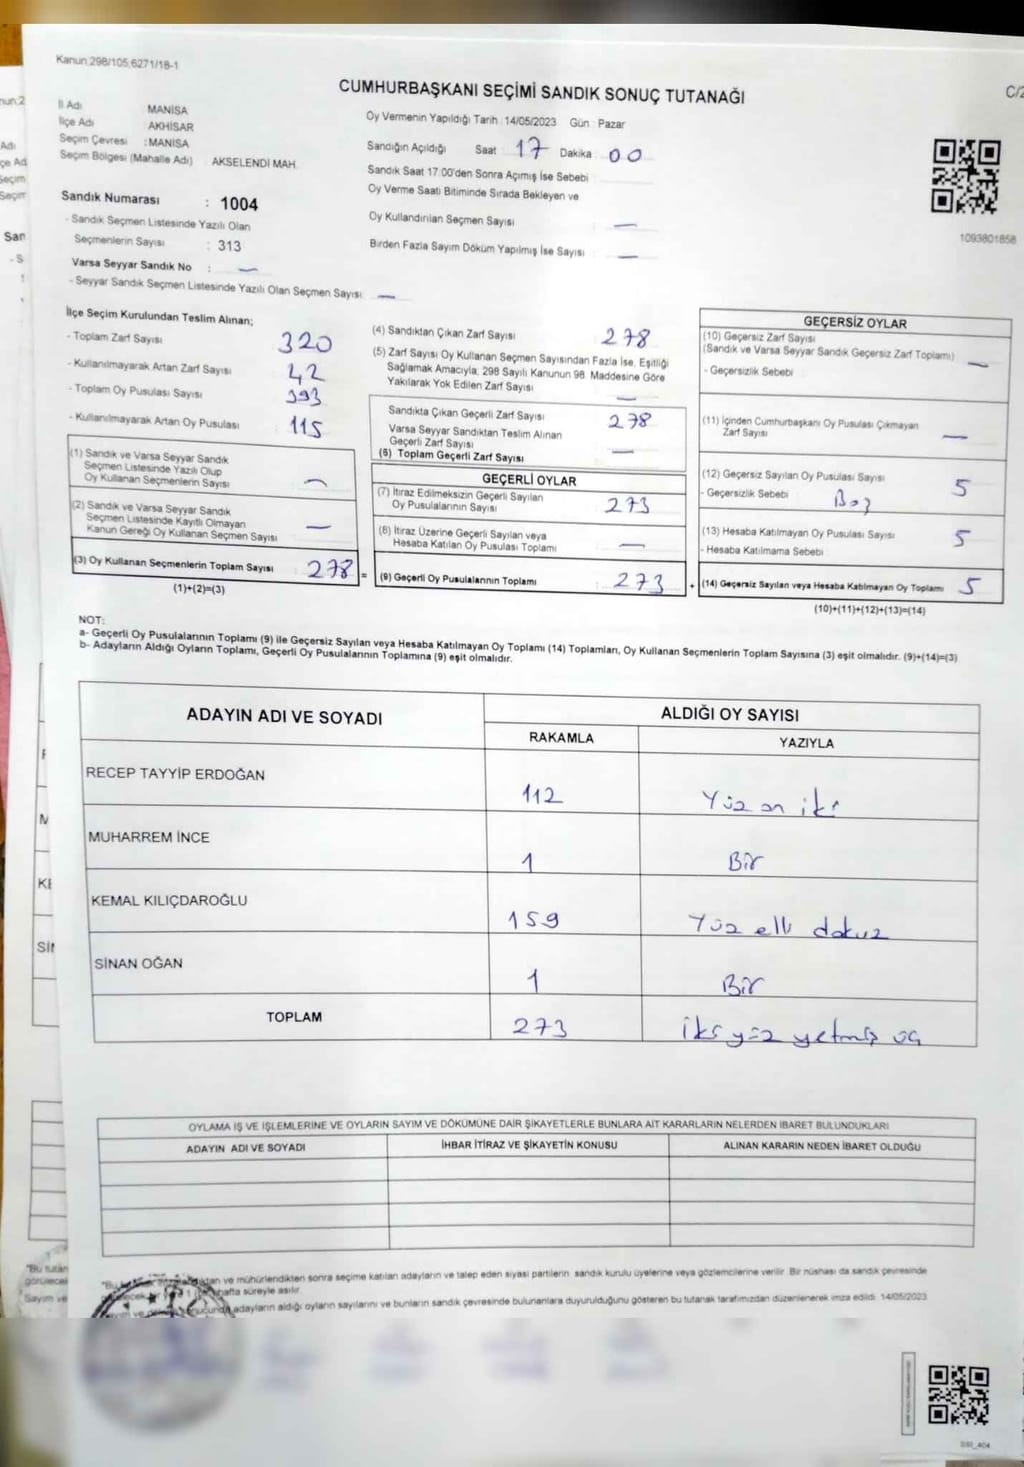 Kanun;298/105;6271/18-1
CUMHURBAŞKANI SEÇİMİ SANDIK SONUÇ TUTANAĞI
C/2
İl Adı MANİSA
İlçe Adı AKHİSAR
Seçim Çevresi :MANİSA
Seçim Bölgesi (Mahalle Adı) AKSELENDİ MAH.
Oy Vermenin Yapıldığı Tarih :14/05/2023 Gün : Pazar
Sandığın Açıldığı Saat 17 Dakika : 00
Sandık Saat 17.00'den Sonra Açımış İse Sebebi :
Oy Verme Saati Bitiminde Sırada Bekleyen ve
Oy Kullandırılan Seçmen Sayısı : —
Birden Fazla Sayım Döküm Yapılmış İse Sayısı : —
1093801858
Sandık Numarası : 1004
- Sandık Seçmen Listesinde Yazılı Olan
Seçmenlerin Sayısı : 313
Varsa Seyyar Sandık No : —
- Seyyar Sandık Seçmen Listesinde Yazılı Olan Seçmen Sayısı: —
İlçe Seçim Kurulundan Teslim Alınan;
- Toplam Zarf Sayısı : 320
- Kullanılmayarak Artan Zarf Sayısı : 42
- Toplam Oy Pusulası Sayısı : 393
- Kullanılmayarak Artan Oy Pusulası : 115
(1) Sandık ve Varsa Seyyar Sandık
Seçmen Listesinde Yazılı Olup
Oy Kullanan Seçmenlerin Sayısı : —
(2) Sandık ve Varsa Seyyar Sandık
Seçmen Listesinde Kayıtlı Olmayan
Kanun Gereği Oy Kullanan Seçmen Sayısı : —
(3) Oy Kullanan Seçmenlerin Toplam Sayısı : 278 =
(1)+(2)=(3)
(4) Sandıktan Çıkan Zarf Sayısı : 278
(5) Zarf Sayısı Oy Kullanan Seçmen Sayısından Fazla İse, Eşitliği
Sağlamak Amacıyla; 298 Sayılı Kanunun 98. Maddesine Göre
Yakılarak Yok Edilen Zarf Sayısı : —
Sandıkta Çıkan Geçerli Zarf Sayısı : 278
Varsa Seyyar Sandıktan Teslim Alınan
Geçerli Zarf Sayısı : —
(6) Toplam Geçerli Zarf Sayısı
GEÇERLİ OYLAR
(7) İtiraz Edilmeksizin Geçerli Sayılan
Oy Pusulalarının Sayısı : 273
(8) İtiraz Üzerine Geçerli Sayılan veya
Hesaba Katılan Oy Pusulası Toplamı : —
(9) Geçerli Oy Pusulalarının Toplamı : 273 +
GEÇERSİZ OYLAR
(10) Geçersiz Zarf Sayısı
(Sandık ve Varsa Seyyar Sandık Geçersiz Zarf Toplamı) : —
- Geçersizlik Sebebi
(11) İçinden Cumhurbaşkanı Oy Pusulası Çıkmayan
Zarf Sayısı : —
(12) Geçersiz Sayılan Oy Pusulası Sayısı : 5
- Geçersizlik Sebebi
(13) Hesaba Katılmayan Oy Pusulası Sayısı : 5
- Hesaba Katılmama Sebebi
(14) Geçersiz Sayılan veya Hesaba Katılmayan Oy Toplamı : 5
(10)+(11)+(12)+(13)=(14)
NOT:
a- Geçerli Oy Pusulalarının Toplamı (9) ile Geçersiz Sayılan veya Hesaba Katılmayan Oy Toplamı (14) Toplamları, Oy Kullanan Seçmenlerin Toplam Sayısına (3) eşit olmalıdır. (9)+(14)=(3)
b- Adayların Aldığı Oyların Toplamı, Geçerli Oy Pusulalarının Toplamına (9) eşit olmalıdır.
ADAYIN ADI VE SOYADI ALDIĞI OY SAYISI
RAKAMLA YAZIYLA
RECEP TAYYİP ERDOĞAN 112 Yüz on iki
MUHARREM İNCE 1 Bir
KEMAL KILIÇDAROĞLU 159 Yüz elli dokuz
SİNAN OĞAN 1 Bir
TOPLAM 273 iki yüz yetmiş üç
OYLAMA İŞ VE İŞLEMLERİNE VE OYLARIN SAYIM VE DÖKÜMÜNE DAİR ŞİKAYETLERLE BUNLARA AİT KARARLARIN NELERDEN İBARET BULUNDUKLARI
ADAYIN ADI VE SOYADI İHBAR İTİRAZ VE ŞİKAYETİN KONUSU ALINAN KARARIN NEDEN İBARET OLDUĞU
ve mühürlendikten sonra seçime katılan adayların ve talep eden siyasi partilerin sandık kurulu üyelerine veya gözlemcilerine verilir. Bir nüshası da sandık çevresinde
hafta süreyle asılır.
adayların aldığı oyların sayılarını ve bunların sandık çevresinde bulunanlara duyurulduğunu gösteren bu tutanak tarafımızdan düzenlenerek imza edildi. 14/05/2023